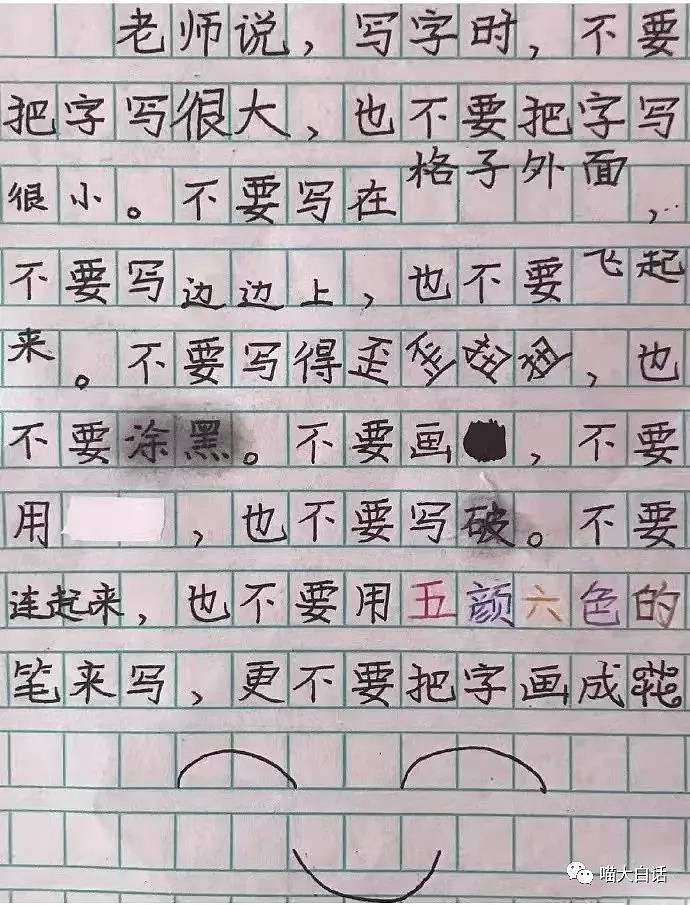 老师说，写字时，不要
把字写很大，也不要把字写
很小。不要写在格子外面，
不要写边边上，也不要飞起
来。不要写得歪歪扭扭，也
不要涂黑。不要画，不要
用，也不要写破。不要
连起来，也不要用五颜六色的
笔来写，更不要把字画成花
喵大白话